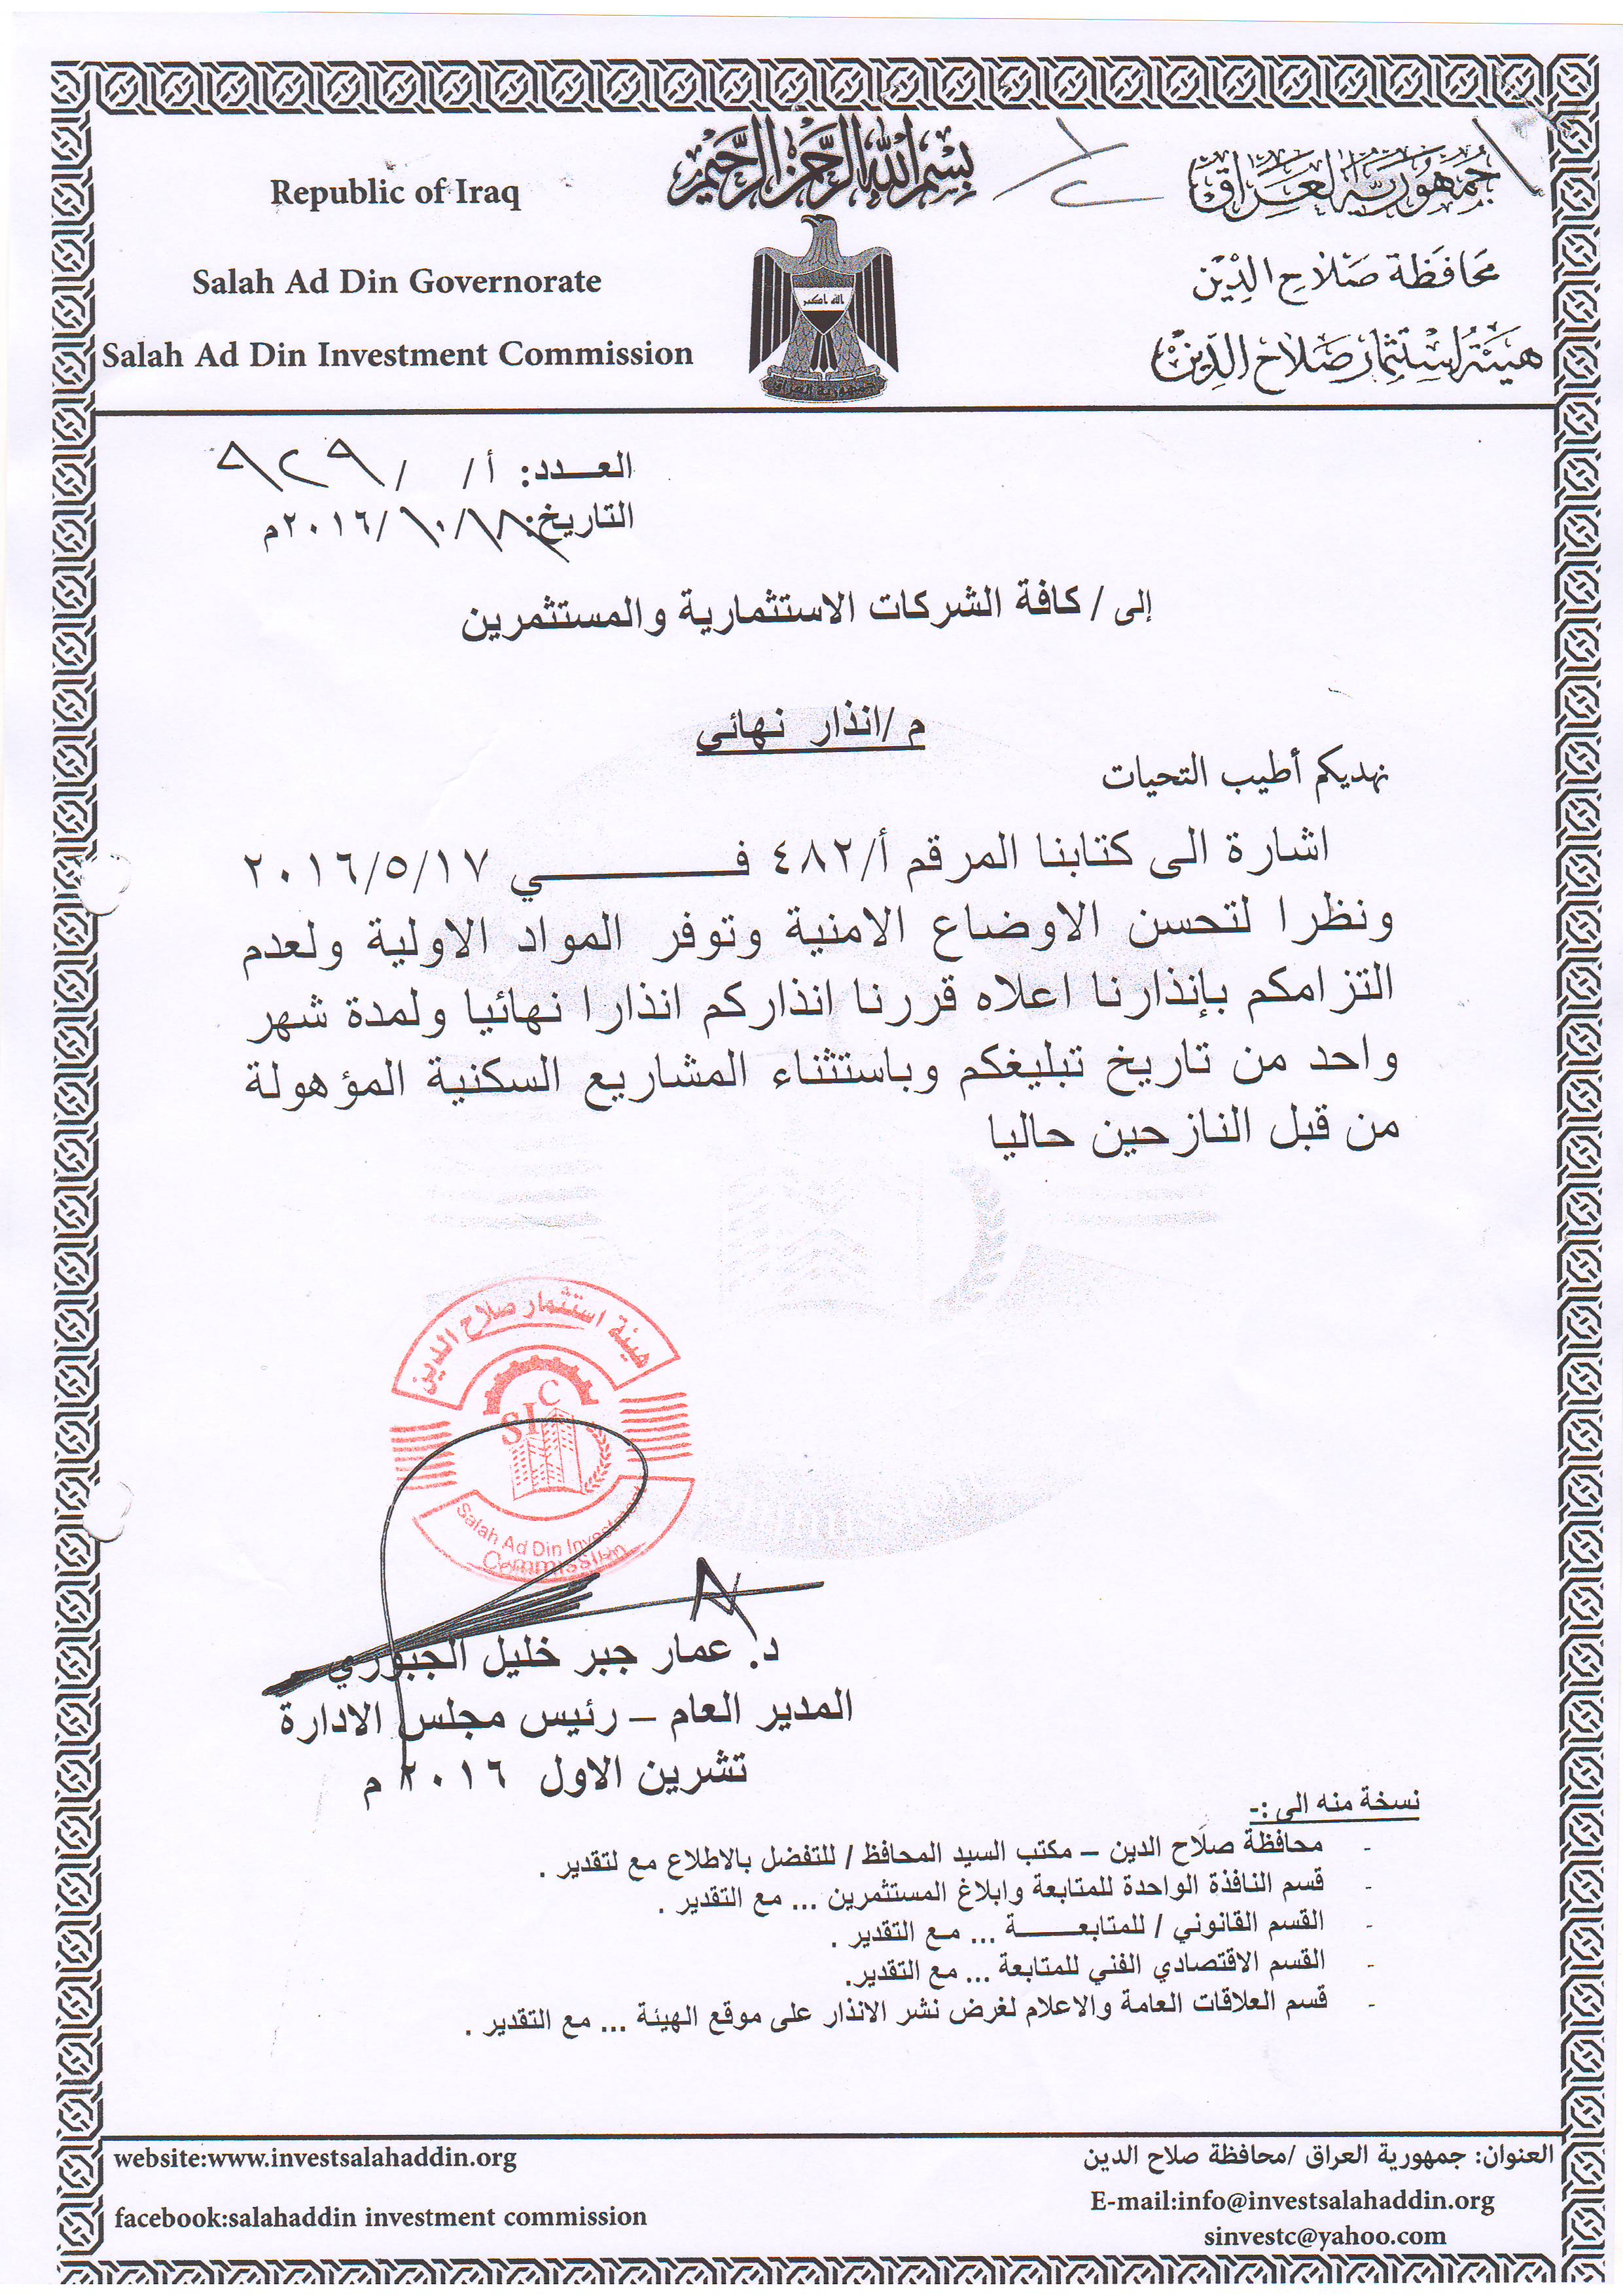 بسم الله الرحمن الرحيم
Republic of Iraq
جمهورية العراق
Salah Ad Din Governorate
محافظة صلاح الدين
Salah Ad Din Investment Commission
هيئة استثمار صلاح الدين
الله اكبر
جمهورية العراق
العـــدد: أ/ / ٩٢٩
التاريخ: ١٨/ ١٠/ ٢٠١٦م
إلى / كافة الشركات الاستثمارية والمستثمرين
م /انذار نهائي
نهديكم أطيب التحيات
اشارة الى كتابنا المرقم أ/٤٨٢ فــــــــي ٢٠١٦/٥/١٧
ونظرا لتحسن الاوضاع الامنية وتوفر المواد الاولية ولعدم
التزامكم بإنذارنا اعلاه قررنا انذاركم انذارا نهائيا ولمدة شهر
واحد من تاريخ تبليغكم وباستثناء المشاريع السكنية المؤهولة
من قبل النازحين حاليا
هيئة استثمار صلاح الدين
SIC
Salah Ad Din Investment
Commission
د. عمار جبر خليل الجبوري
المدير العام – رئيس مجلس الادارة
تشرين الاول ٢٠١٦ م
نسخة منه الى :-
- محافظة صلاح الدين – مكتب السيد المحافظ / للتفضل بالاطلاع مع لتقدير .
- قسم النافذة الواحدة للمتابعة وابلاغ المستثمرين ... مع التقدير .
- القسم القانوني / للمتابعــــــة ... مـع التقدير .
- القسم الاقتصادي الفني للمتابعة ... مع التقدير.
- قسم العلاقات العامة والاعلام لغرض نشر الانذار على موقع الهيئة ... مع التقدير .
website:www.investsalahaddin.org
العنوان: جمهورية العراق /محافظة صلاح الدين
E-mail:info@investsalahaddin.org
facebook:salahaddin investment commission
sinvestc@yahoo.com